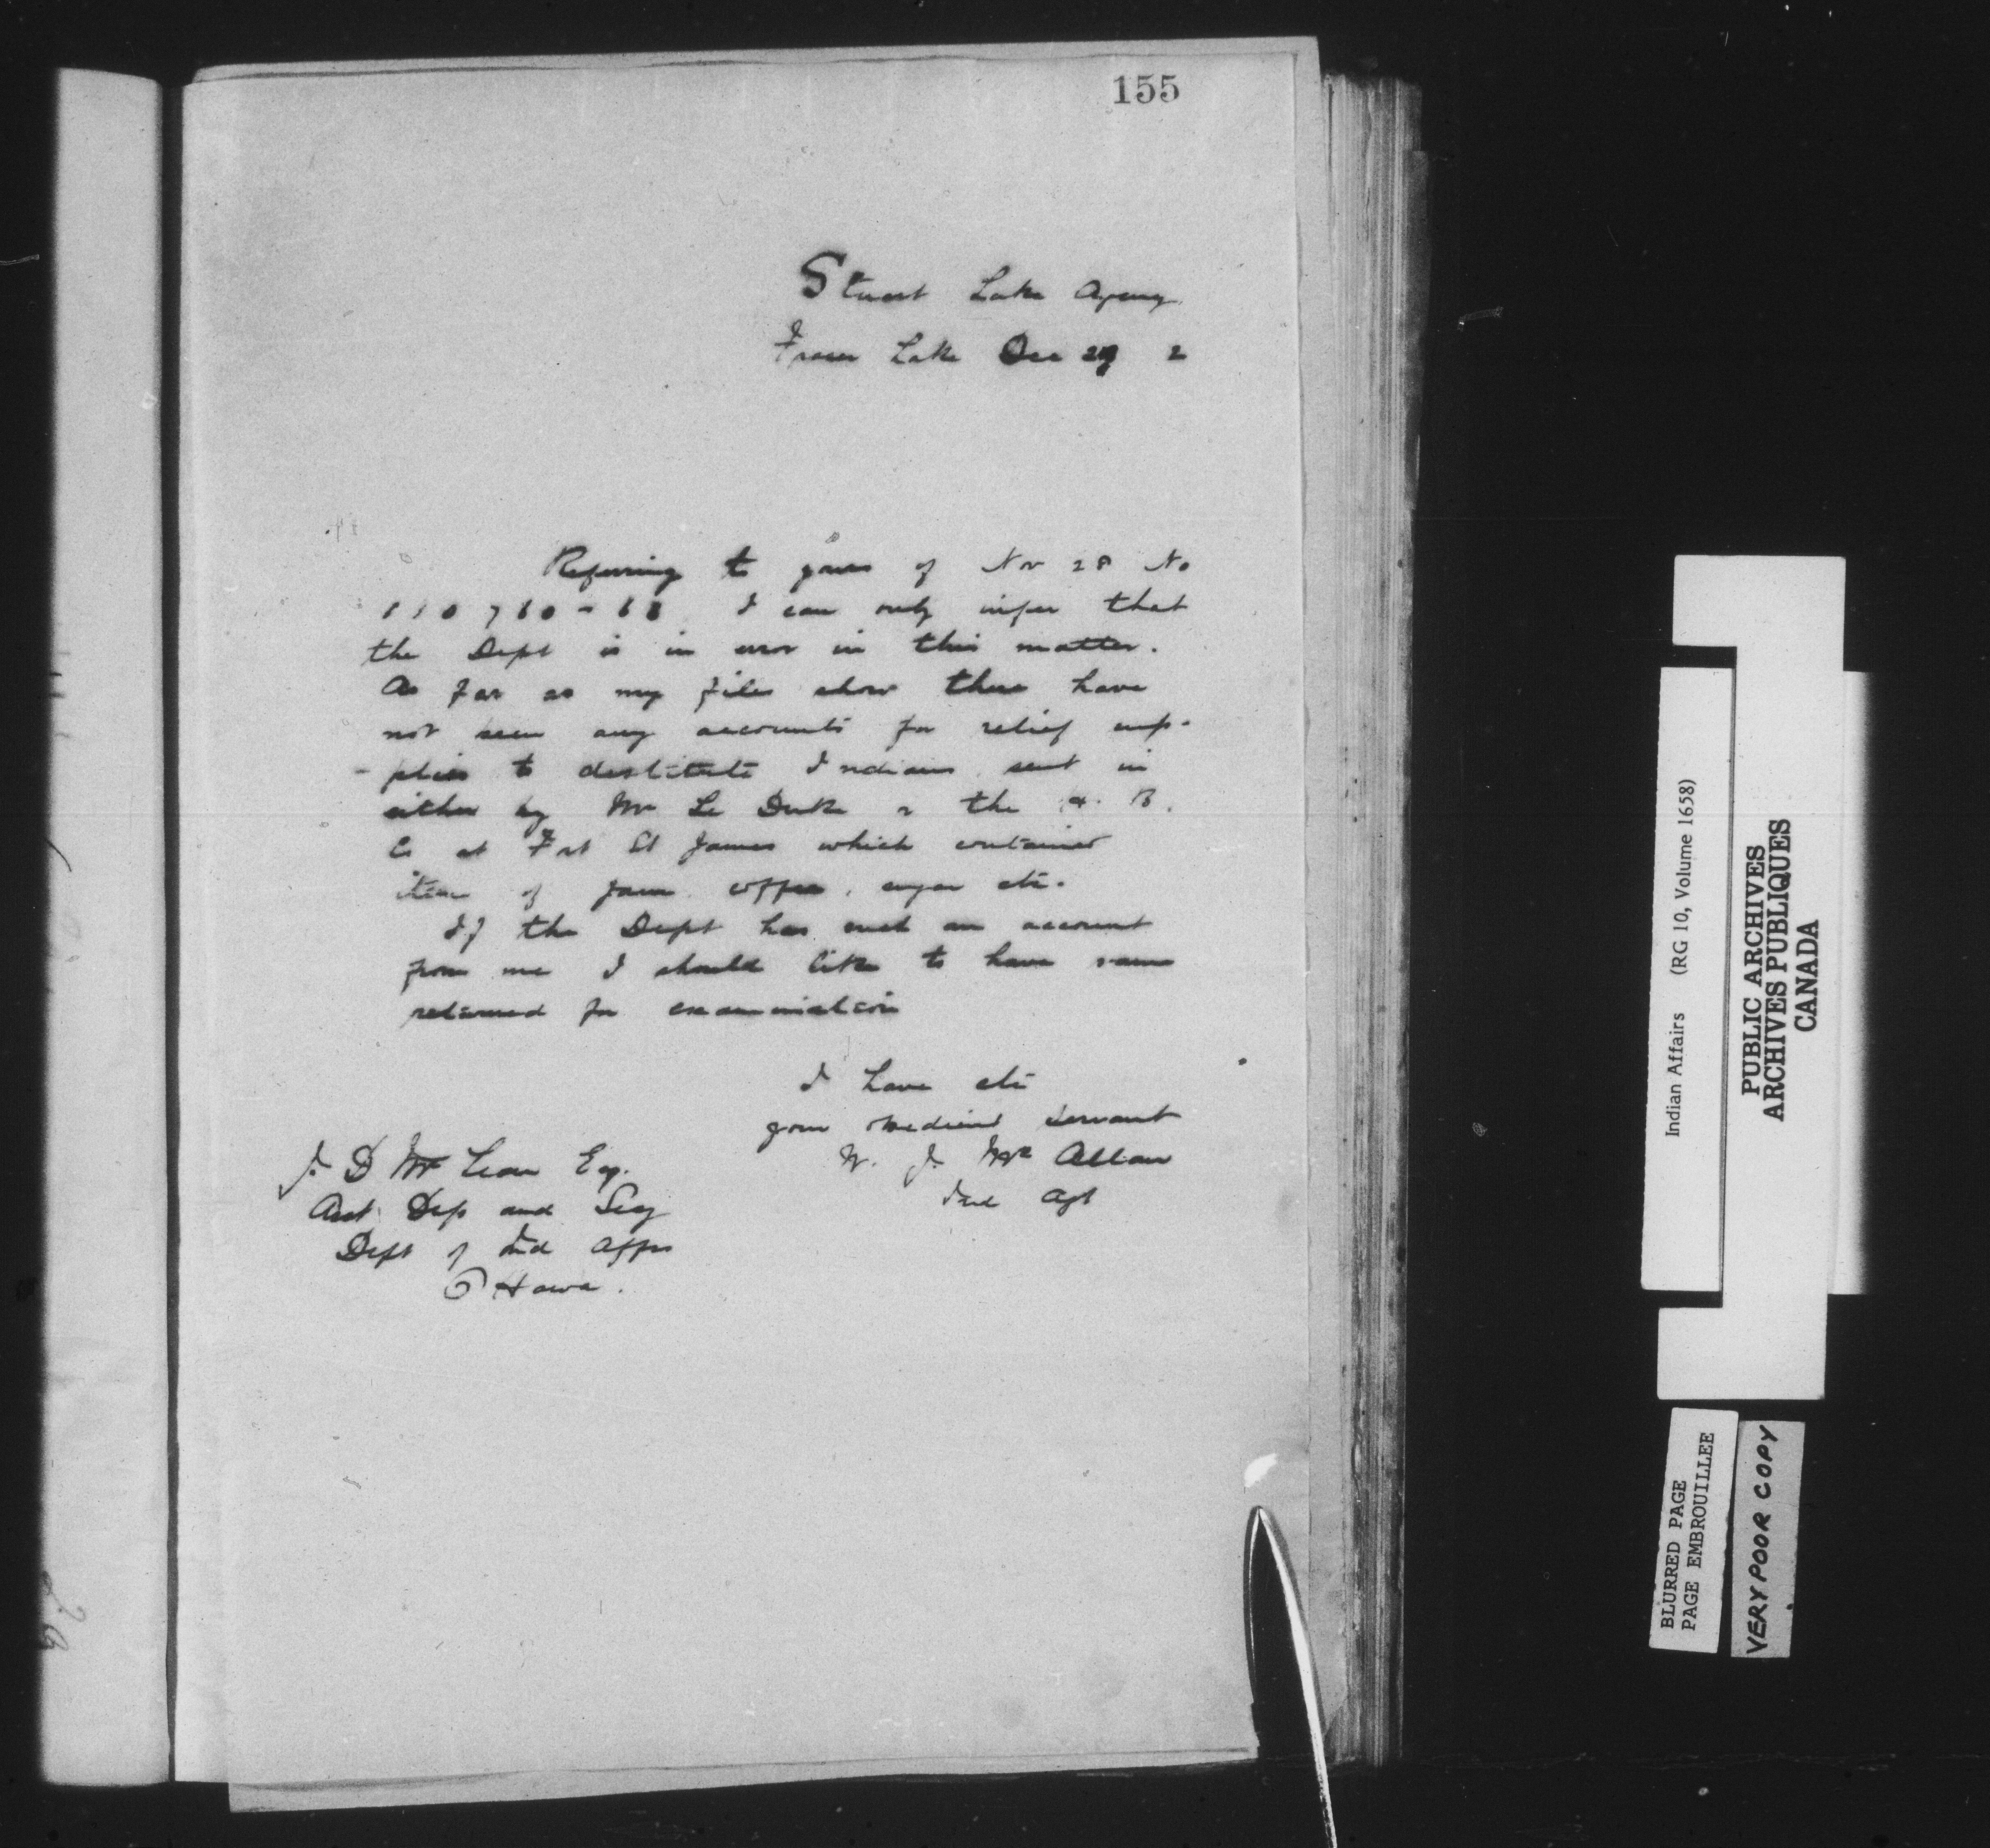 155
Stuart Lake Agency
Fraser Lake Dec 29 2
Referring to yours of Nov 28 No
110760-68 I can only infer that
the Dept is in error in this matter.
As far as my files show there have
not been any accounts for relief sup-
-plies to destitute Indians sent in
either by Mr Le Duke or the H. B.
Co at Fort St James which contained
item of jam coffee, sugar etc.
If the Dept has such an account
from me I should like to have same
returned for examination
I have etc
your obedient servant
W. J. McAllan
Ind Agt
J. D McLean Esq.
Asst Dep and Secy
Dept of Ind Affrs
Ottawa.
Indian Affairs (RG 10, Volume 1658)
PUBLIC ARCHIVES
ARCHIVES PUBLIQUES
CANADA
BLURRED PAGE
PAGE EMBROUILLEE
VERY POOR COPY